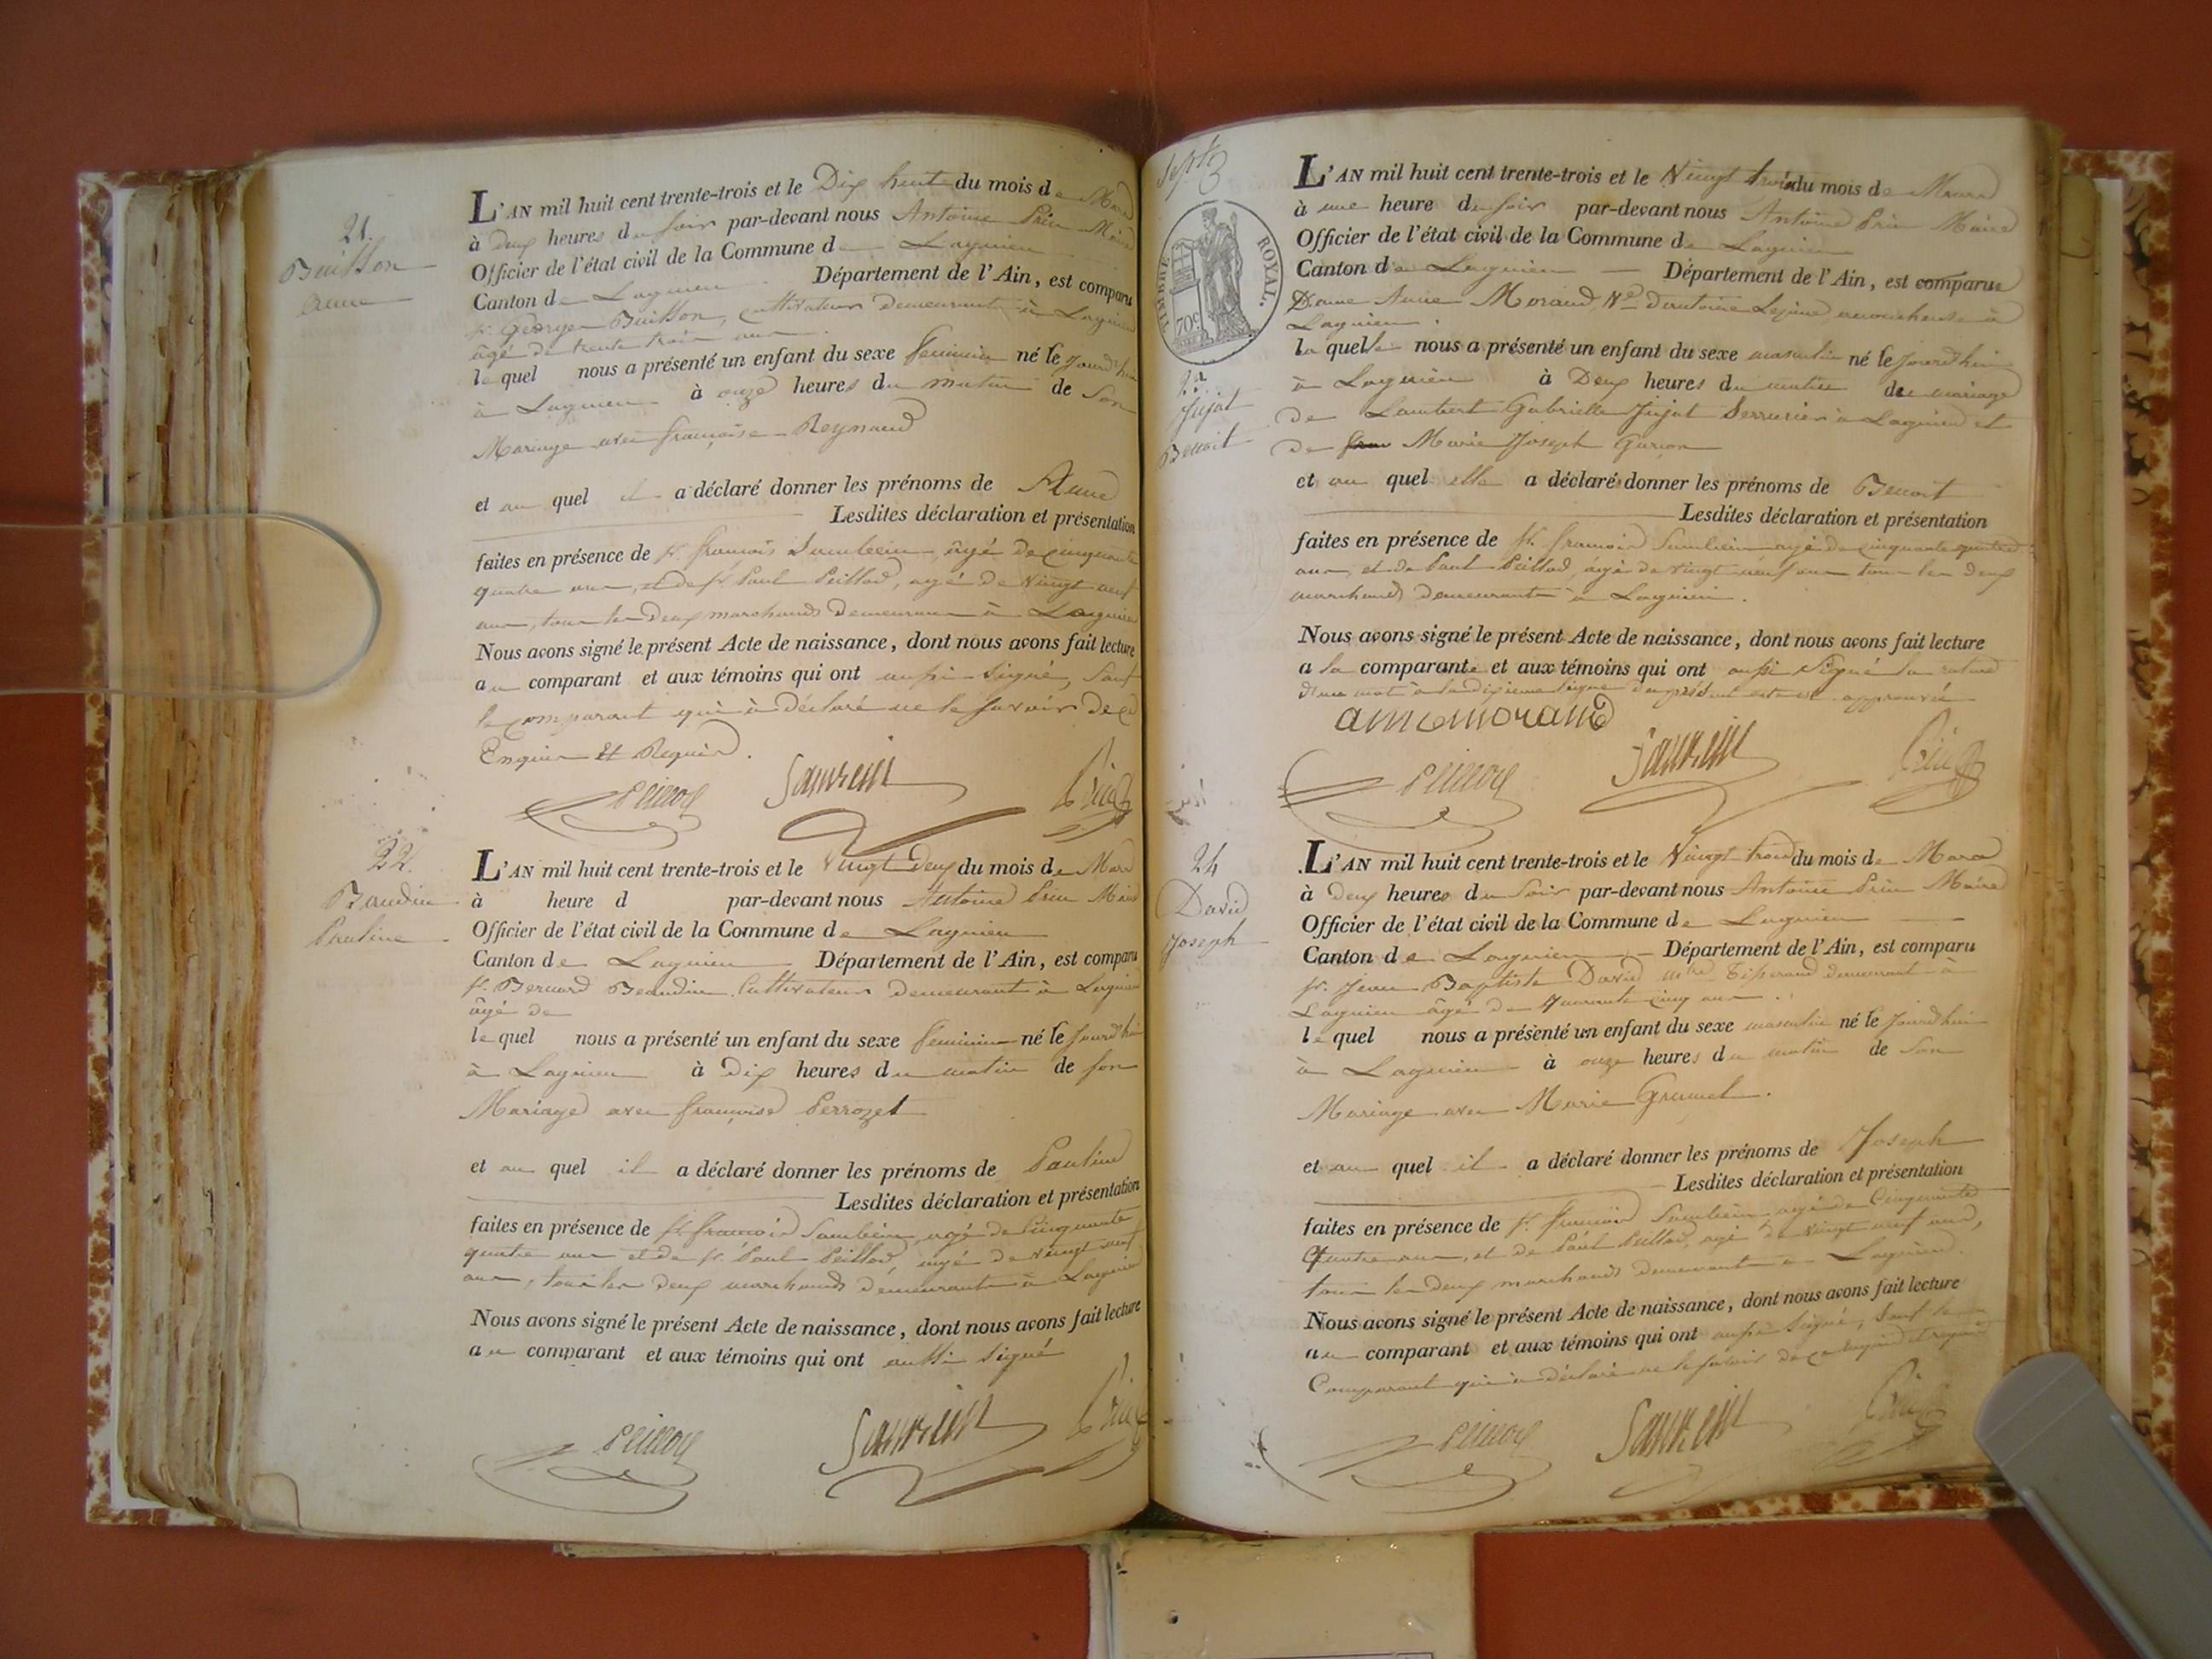 21.
Buisson
Anne
L'AN mil huit cent trente-trois et le Dix huit du mois de Mars
à deux heures du soir par-devant nous Antoine Prin Maire
Officier de l'état civil de la Commune de Lagnieu
Canton de Lagnieu Département de l'Ain, est comparu
sr. George Buisson, cultivateur demeurant à Lagnieu
âgé de trente trois ans
lequel nous a présenté un enfant du sexe feminin né le jourd'hui
à Lagnieu à onze heures du matin de son
Mariage avec françoise Reynaud
et au quel il a déclaré donner les prénoms de Anne
Lesdites déclaration et présentation
faites en présence de sr. françois Sambein, âgé de cinquante
quatre ans, et de sr. Paul Peillod, agé de vingt neuf
ans, tous les deux marchands demeurans à Lagnieu
Nous avons signé le présent Acte de naissance, dont nous avons fait lecture
au comparant et aux témoins qui ont aussi signé, sauf
le comparant qui a déclaré ne le savoir de ce
Enquis Et Requis.
Peillod Sambein Prin
22.
Baudin
Pauline
L'AN mil huit cent trente-trois et le Vingt deux du mois de Mars
à heure d par-devant nous Antoine Prin Maire
Officier de l'état civil de la Commune de Lagnieu
Canton de Lagnieu Département de l'Ain, est comparu
sr. Bernard Beaudin Cultivateur demeurant à Lagnieu
âgé de
lequel nous a présenté un enfant du sexe feminin né le jourd'hui
à Lagnieu à dix heures du matin de son
Mariage avec françoise Perrozet
et au quel il a déclaré donner les prénoms de Pauline
Lesdites déclaration et présentation
faites en présence de sr. françois Sambein, agé de cinquante
quatre ans et de sr. Paul Peillod, agé de vingt neuf
ans, tous les deux marchands demeurant à Lagnieu
Nous avons signé le présent Acte de naissance, dont nous avons fait lecture
au comparant et aux témoins qui ont aussi signé
Peillod Sambein Prin
TIMBRE ROYAL.
70c
Jujat
Benoit
L'AN mil huit cent trente-trois et le Vingt trois du mois de Mars
à une heure du soir par-devant nous Antoine Prin Maire
Officier de l'état civil de la Commune de Lagnieu
Canton de Lagnieu Département de l'Ain, est comparue
Anne Morand, Ve. d'antoine Lejeune, accoucheuse à
Lagnieu.
laquelle nous a présenté un enfant du sexe masculin né le jourd'hui
à Lagnieu à Deux heures du matin du mariage
de Lambert Gabrielle Jujat Serrurier à Lagnieu et
de Marie Joseph Garion
et au quel elle a déclaré donner les prénoms de Benoit
Lesdites déclaration et présentation
faites en présence de sr. françois Sambein agé de cinquante quatre
ans, et de Paul Peillod, agé de vingt neuf ans tous les deux
marchands demeurants à Lagnieu.
Nous avons signé le présent Acte de naissance, dont nous avons fait lecture
a la comparante et aux témoins qui ont aussi signé la rature
d'un mot à la dixieme ligne du présent est approuvée
anne morand
Peillod Sambein Prin
24
David
Joseph
L'AN mil huit cent trente-trois et le Vingt trois du mois de Mars
à deux heures du soir par-devant nous Antoine Prin Maire
Officier de l'état civil de la Commune de Lagnieu
Canton de Lagnieu Département de l'Ain, est comparu
sr. Jean Baptiste David mtre Tisserand demeurant à
Lagnieu âgé de quarante cinq ans.
lequel nous a présenté un enfant du sexe masculin né le jourd'hui
à Lagnieu à onze heures du matin de son
Mariage avec Marie Grumet.
et au quel il a déclaré donner les prénoms de Joseph
Lesdites déclaration et présentation
faites en présence de sr. françois Sambein agé de Cinquante
Quatre ans, et de Paul Peillod, agé de vingt neuf ans,
tous les deux marchands demeurant à Lagnieu.
Nous avons signé le présent Acte de naissance, dont nous avons fait lecture
au comparant et aux témoins qui ont aussi signé, sauf le
Comparant qui a déclaré ne le savoir de ce enquis et requis
Peillod Sambein Prin